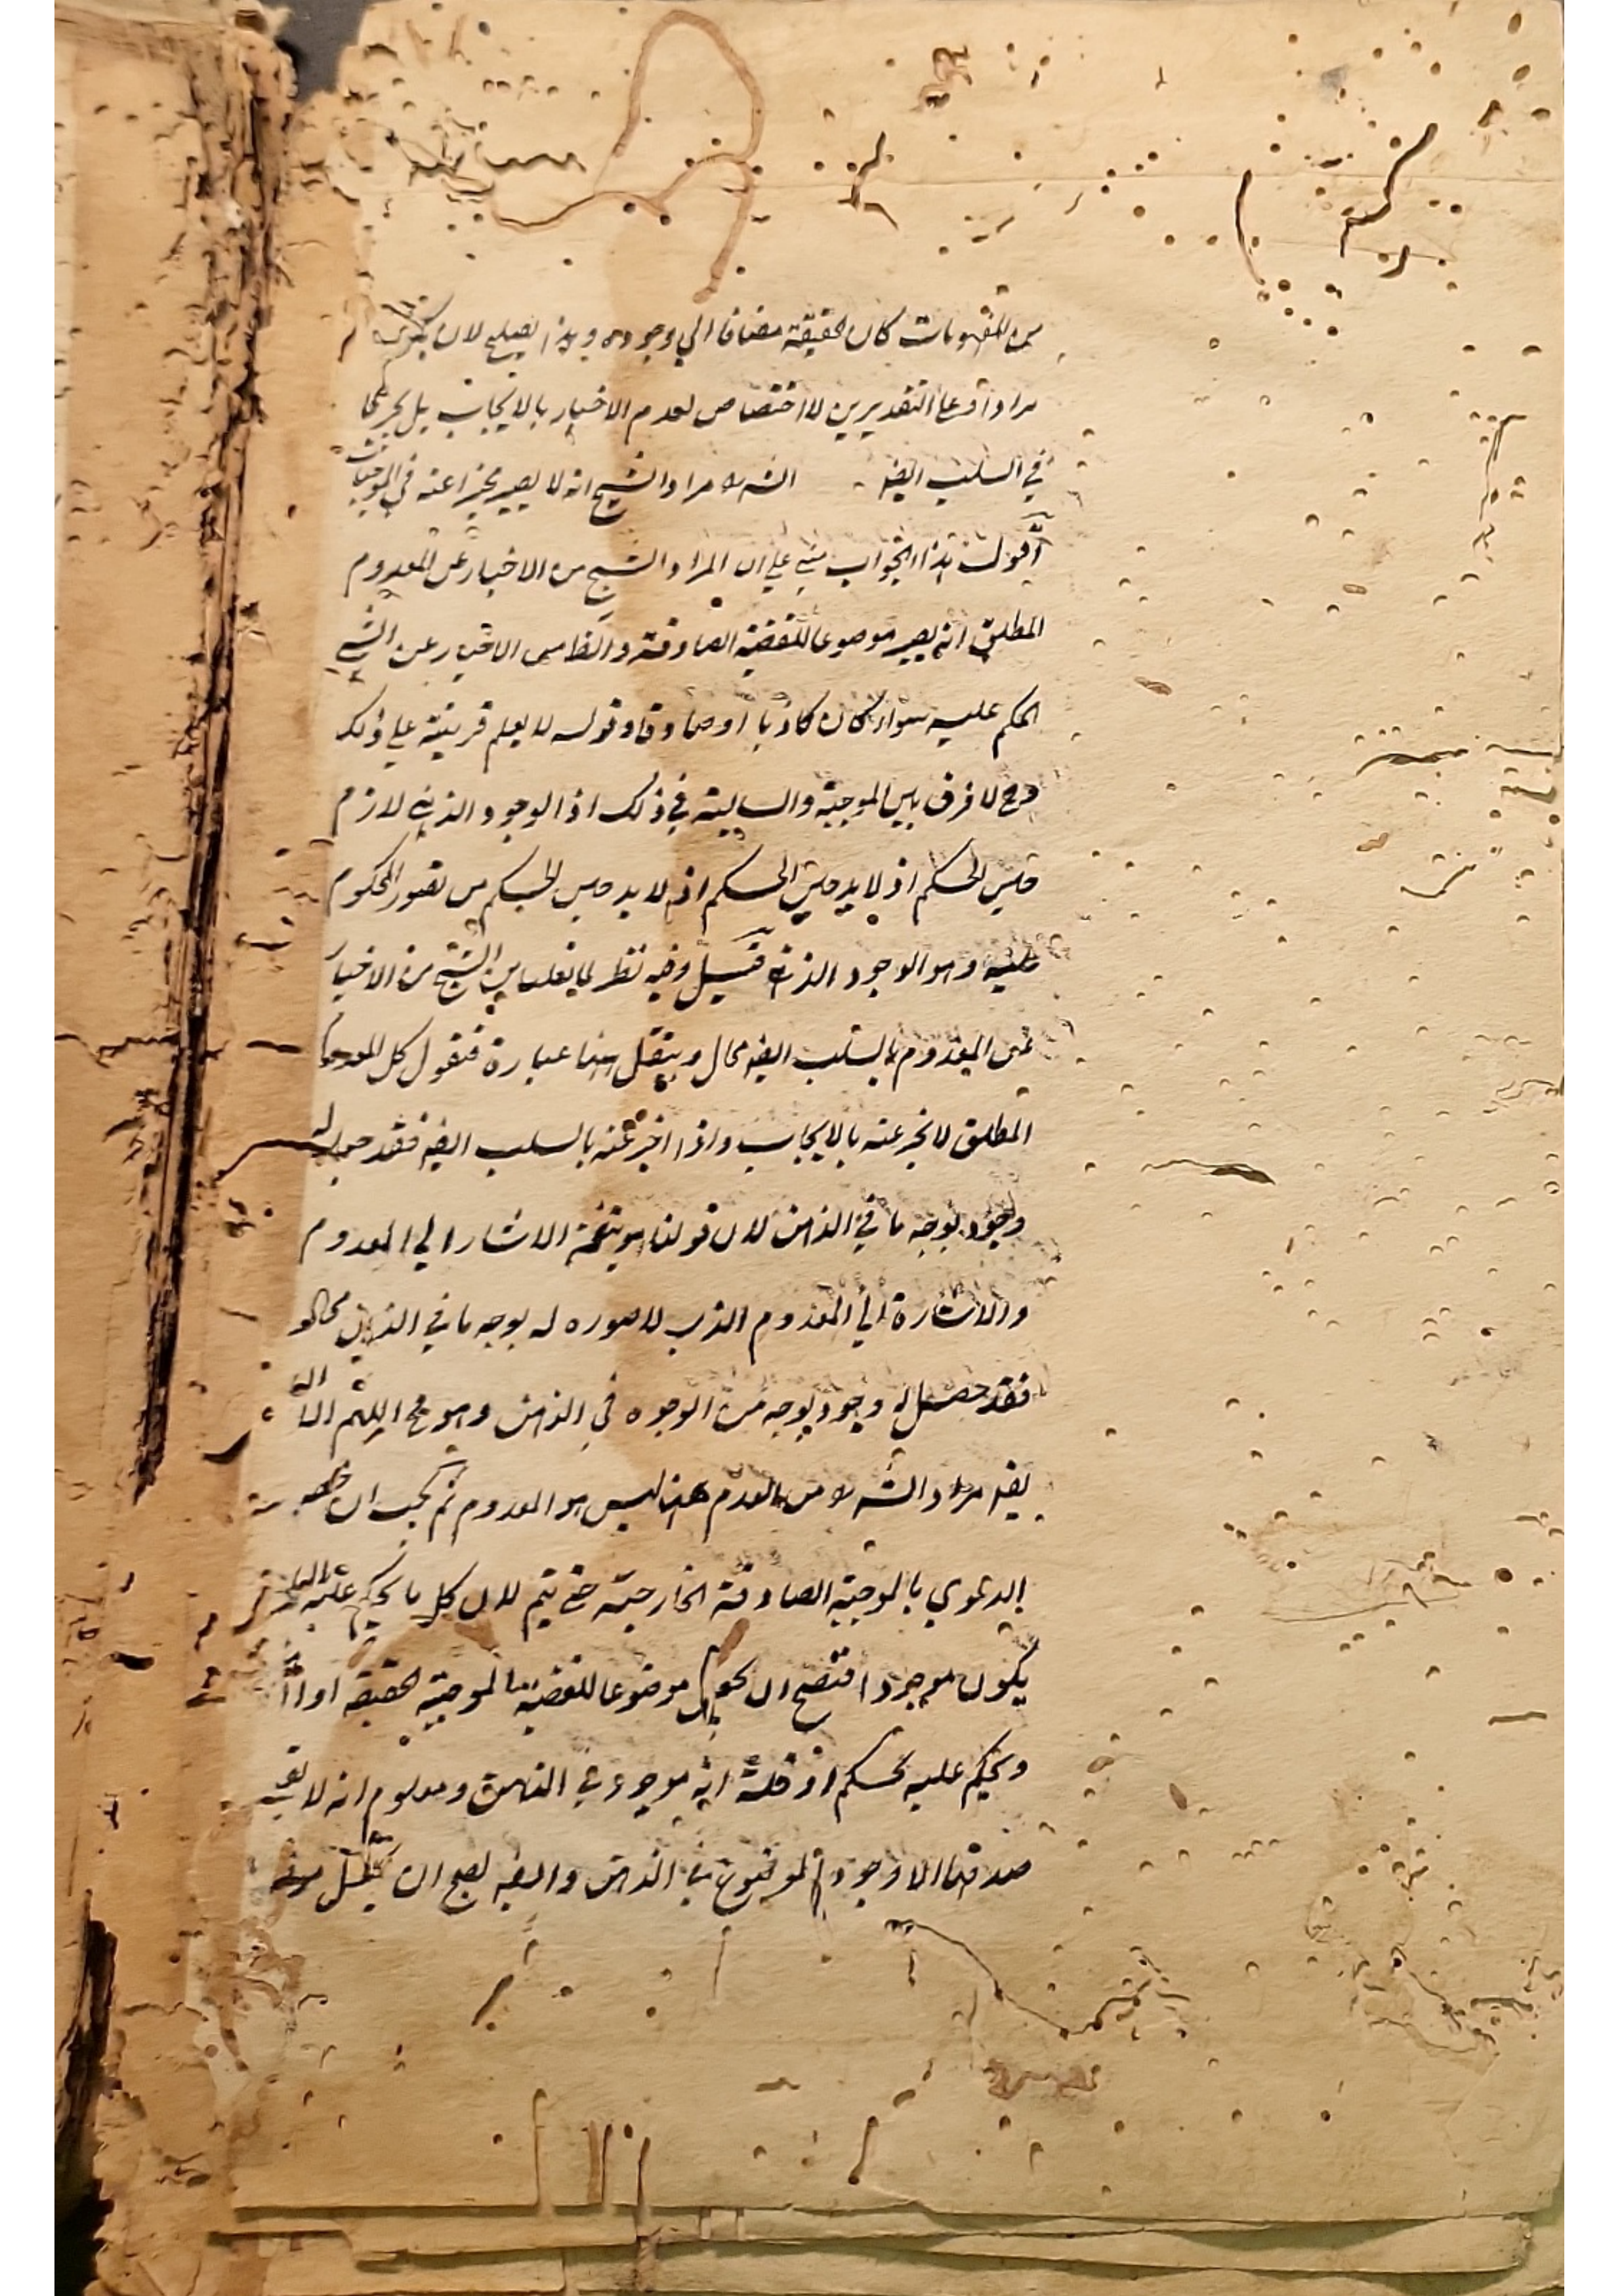 من المفهومات كان حقيقة مضافا الي وجوده وهذا يصلح لان يكون
مرادا وعلى التقديرين لا اختصاص لعدم الاخبار بالايجاب بل يجري
في السلب ايضه الشه مراد الشيخ انه لا يصير مخبرا عنه في الموجبات
اقول هذا الجواب مبني علي ان المراد الشيخ من الاخبار عن المعدوم
المطلق انه يصير موضوعا للقضية الصادقة والظاهر الاخبار عن الشي
الحكم عليه سواء كان كاذبا او صادقا وقوله لا يعلم قرينة علي ذلك
وح لا فرق بين الموجبة والسالبة في ذلك اذ الوجود الذهني لازم
حين الحكم اذ لا بد حين الحكم اذ لا بد حين الحكم من تصور المحكوم
عليه وهو الوجود الذهني قيل وفيه نظر لما نقلنا من الشيخ من الاخبار
عن المعدوم بالسلب ايضه محال وينقل هنا عبارة فنقول كل المعدوم
المطلق لا يخبر عنه بالايجاب واذا اخبر عنه بالسلب ايضه فقد جعل له
وجود بوجه ما في الذهن لان قولنا هو يتضمن الاشارة الي المعدوم
والاشارة الي المعدوم الذي لا صوره له بوجه ما في الذهن محال
فقد حصل له وجود بوجه من الوجوه في الذهن وهو مح اللهم الا
يقه مراد الشه من العدم هنا ليس هو المعدوم ثم يجب ان
الدعوي بالموجبة الصادقة الخارجية حتي يتم لان كل ما يحكم عليه
يكون موجودا فتصح ان يكون موضوعا للقضية الموجبة الحقيقة
ويحكم عليه بحكم اذ قلت انه موجود في الذهن ومعلوم انه لا
صدقها الا وجود الموضوع في الذهن وايضه يصح ان